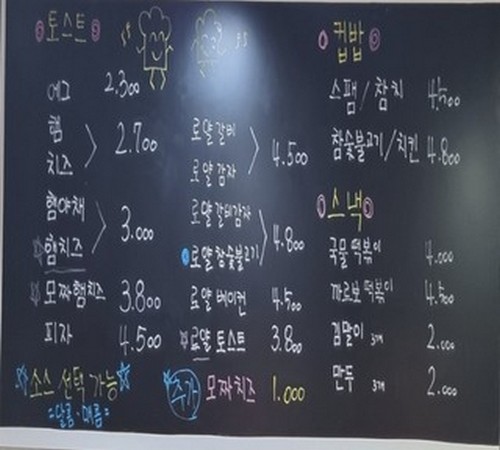 토스트
에그 2.300
햄
치즈 2.700
햄야채
햄치즈 3.000
모짜햄치즈 3.800
피자 4.500
소스 선택 가능
달콤·매콤
로얄 갈비
로얄 감자 4.500
로얄 갈비감자
로얄 참숯불고기 4.800
로얄 베이컨 4.500
로얄 토스트 3.800
추가 모짜치즈 1.000
컵밥
스팸/참치 4.500
참숯불고기/치킨 4.800
스낵
국물 떡볶이 4.000
까르보 떡볶이 4.500
김말이 3개 2.000
만두 3개 2.000